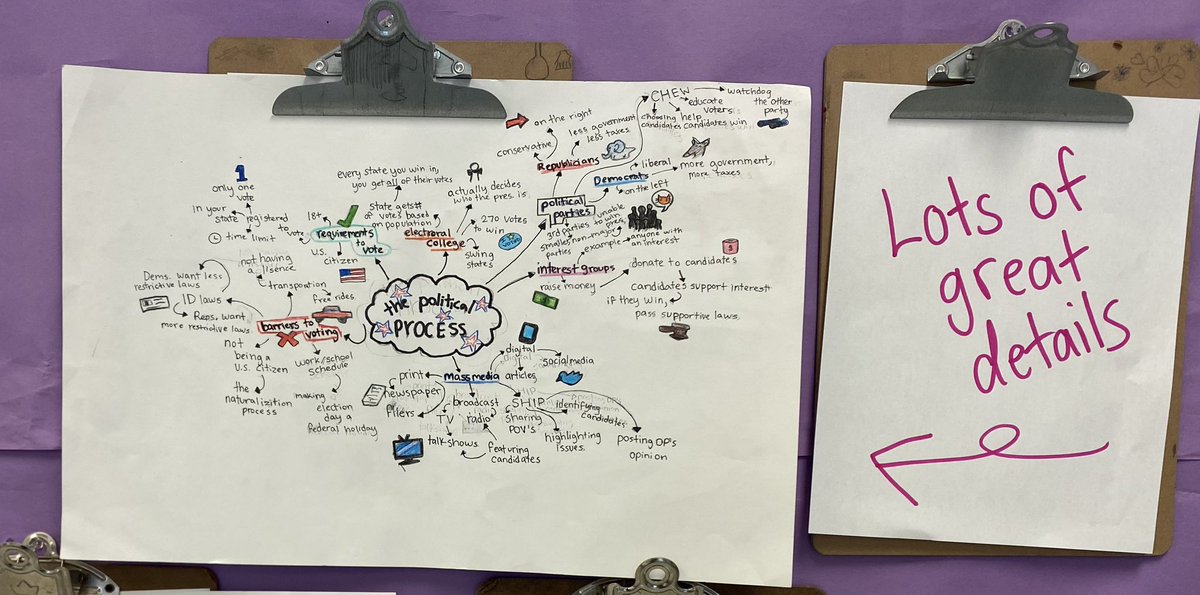 the political
PROCESS
1
only one
vote
in your
state
registered
to
vote
time limit
18+
U.S.
citizen
requirements
to
vote
every state you win in,
you get all of their votes
state gets #
of votes based
on population
electroral
college
actually decides
who the pres. is
270 votes
to win
swing
states
political
parties
Republicians
conservative
on the right
less government
less taxes
CHEW
watchdog
the other
party
educate
voters
choosing
candidates
help
candidates win
Democrats
liberal
on the left
more government,
more taxes
3rd parties
smaller, non-major
parties
unable
to win
pres.
interest groups
example
anyone with
an interest
raise money
donate to candidates
candidates support interest
if they win,
pass supportive laws.
mass media
digital
social media
articles
print
newspaper
fliers
broadcast
TV
radio
talk shows
featuring
candidates
SHIP
sharing
POV's
highlighting
issues.
identifying
candidates
posting OP's
opinion
barriers to
voting
transportion
not having
a lisence
free rides
ID laws
Dems. want less
restrictive laws
Reps. want
more restrictive laws
not
being a
U.S. citizen
the
naturalizition
process
work/school
schedule
making
election
day a
federal holiday
Lots of
great
details